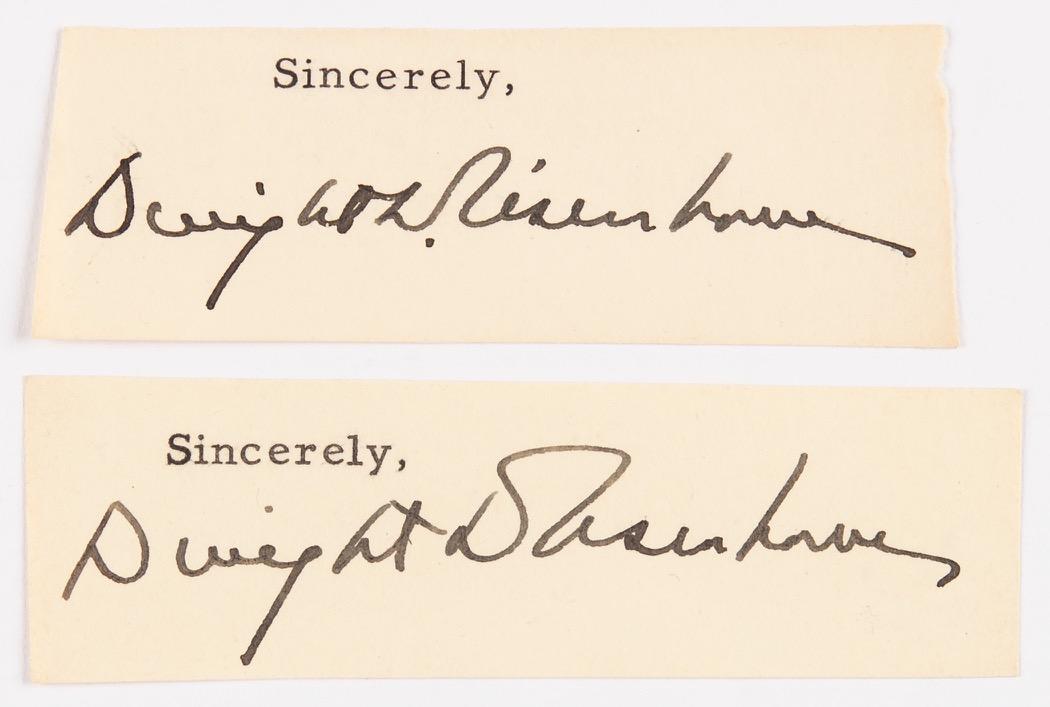 Sincerely,
Dwight D. Eisenhower
Sincerely,
Dwight D Eisenhower